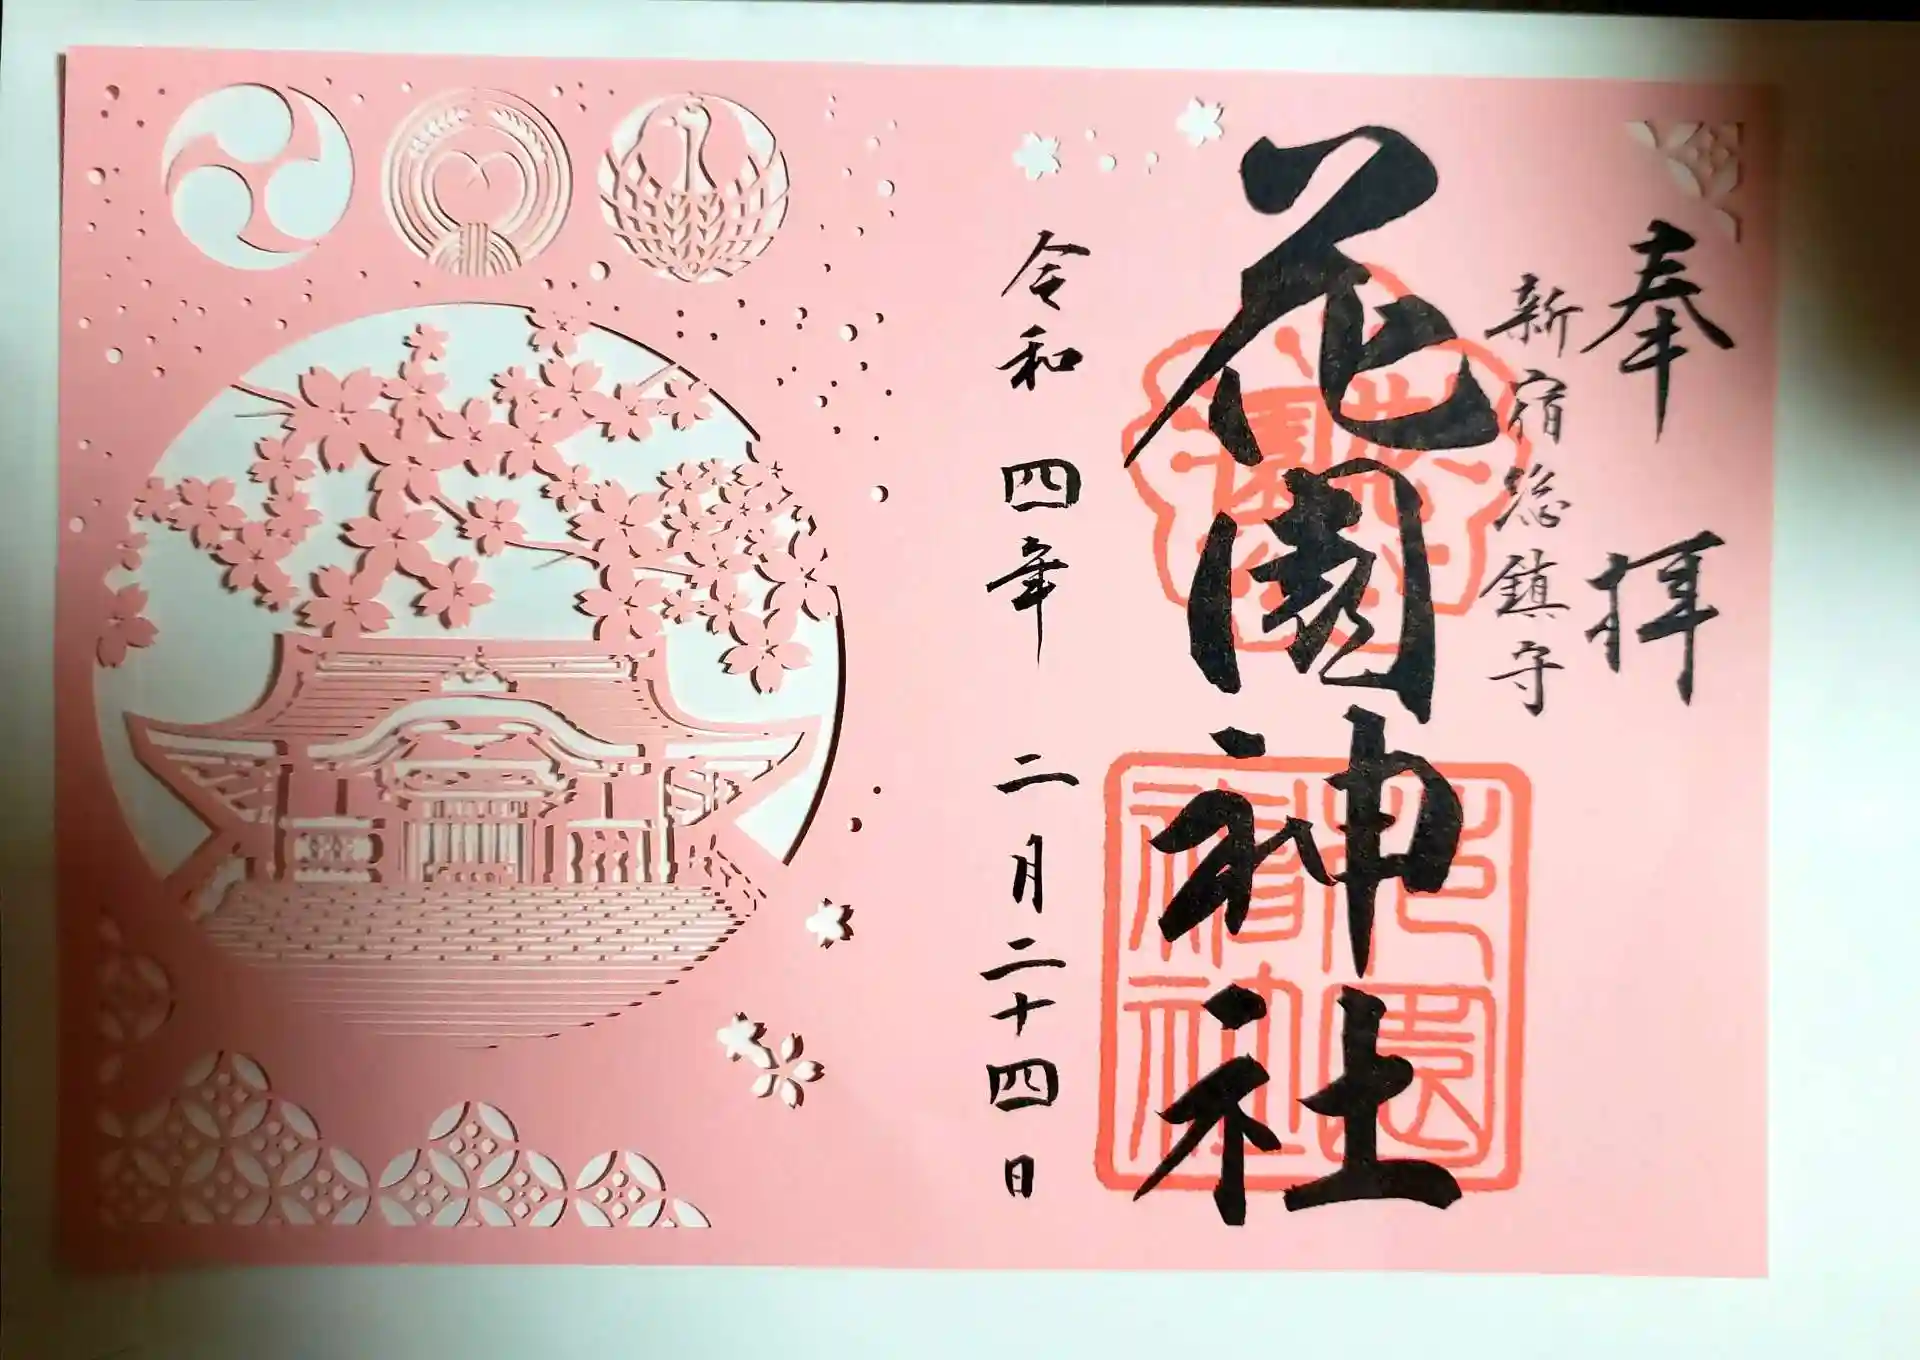 奉拝
新宿総鎮守
花園神社
令和四年二月二十四日
花園
花園神社